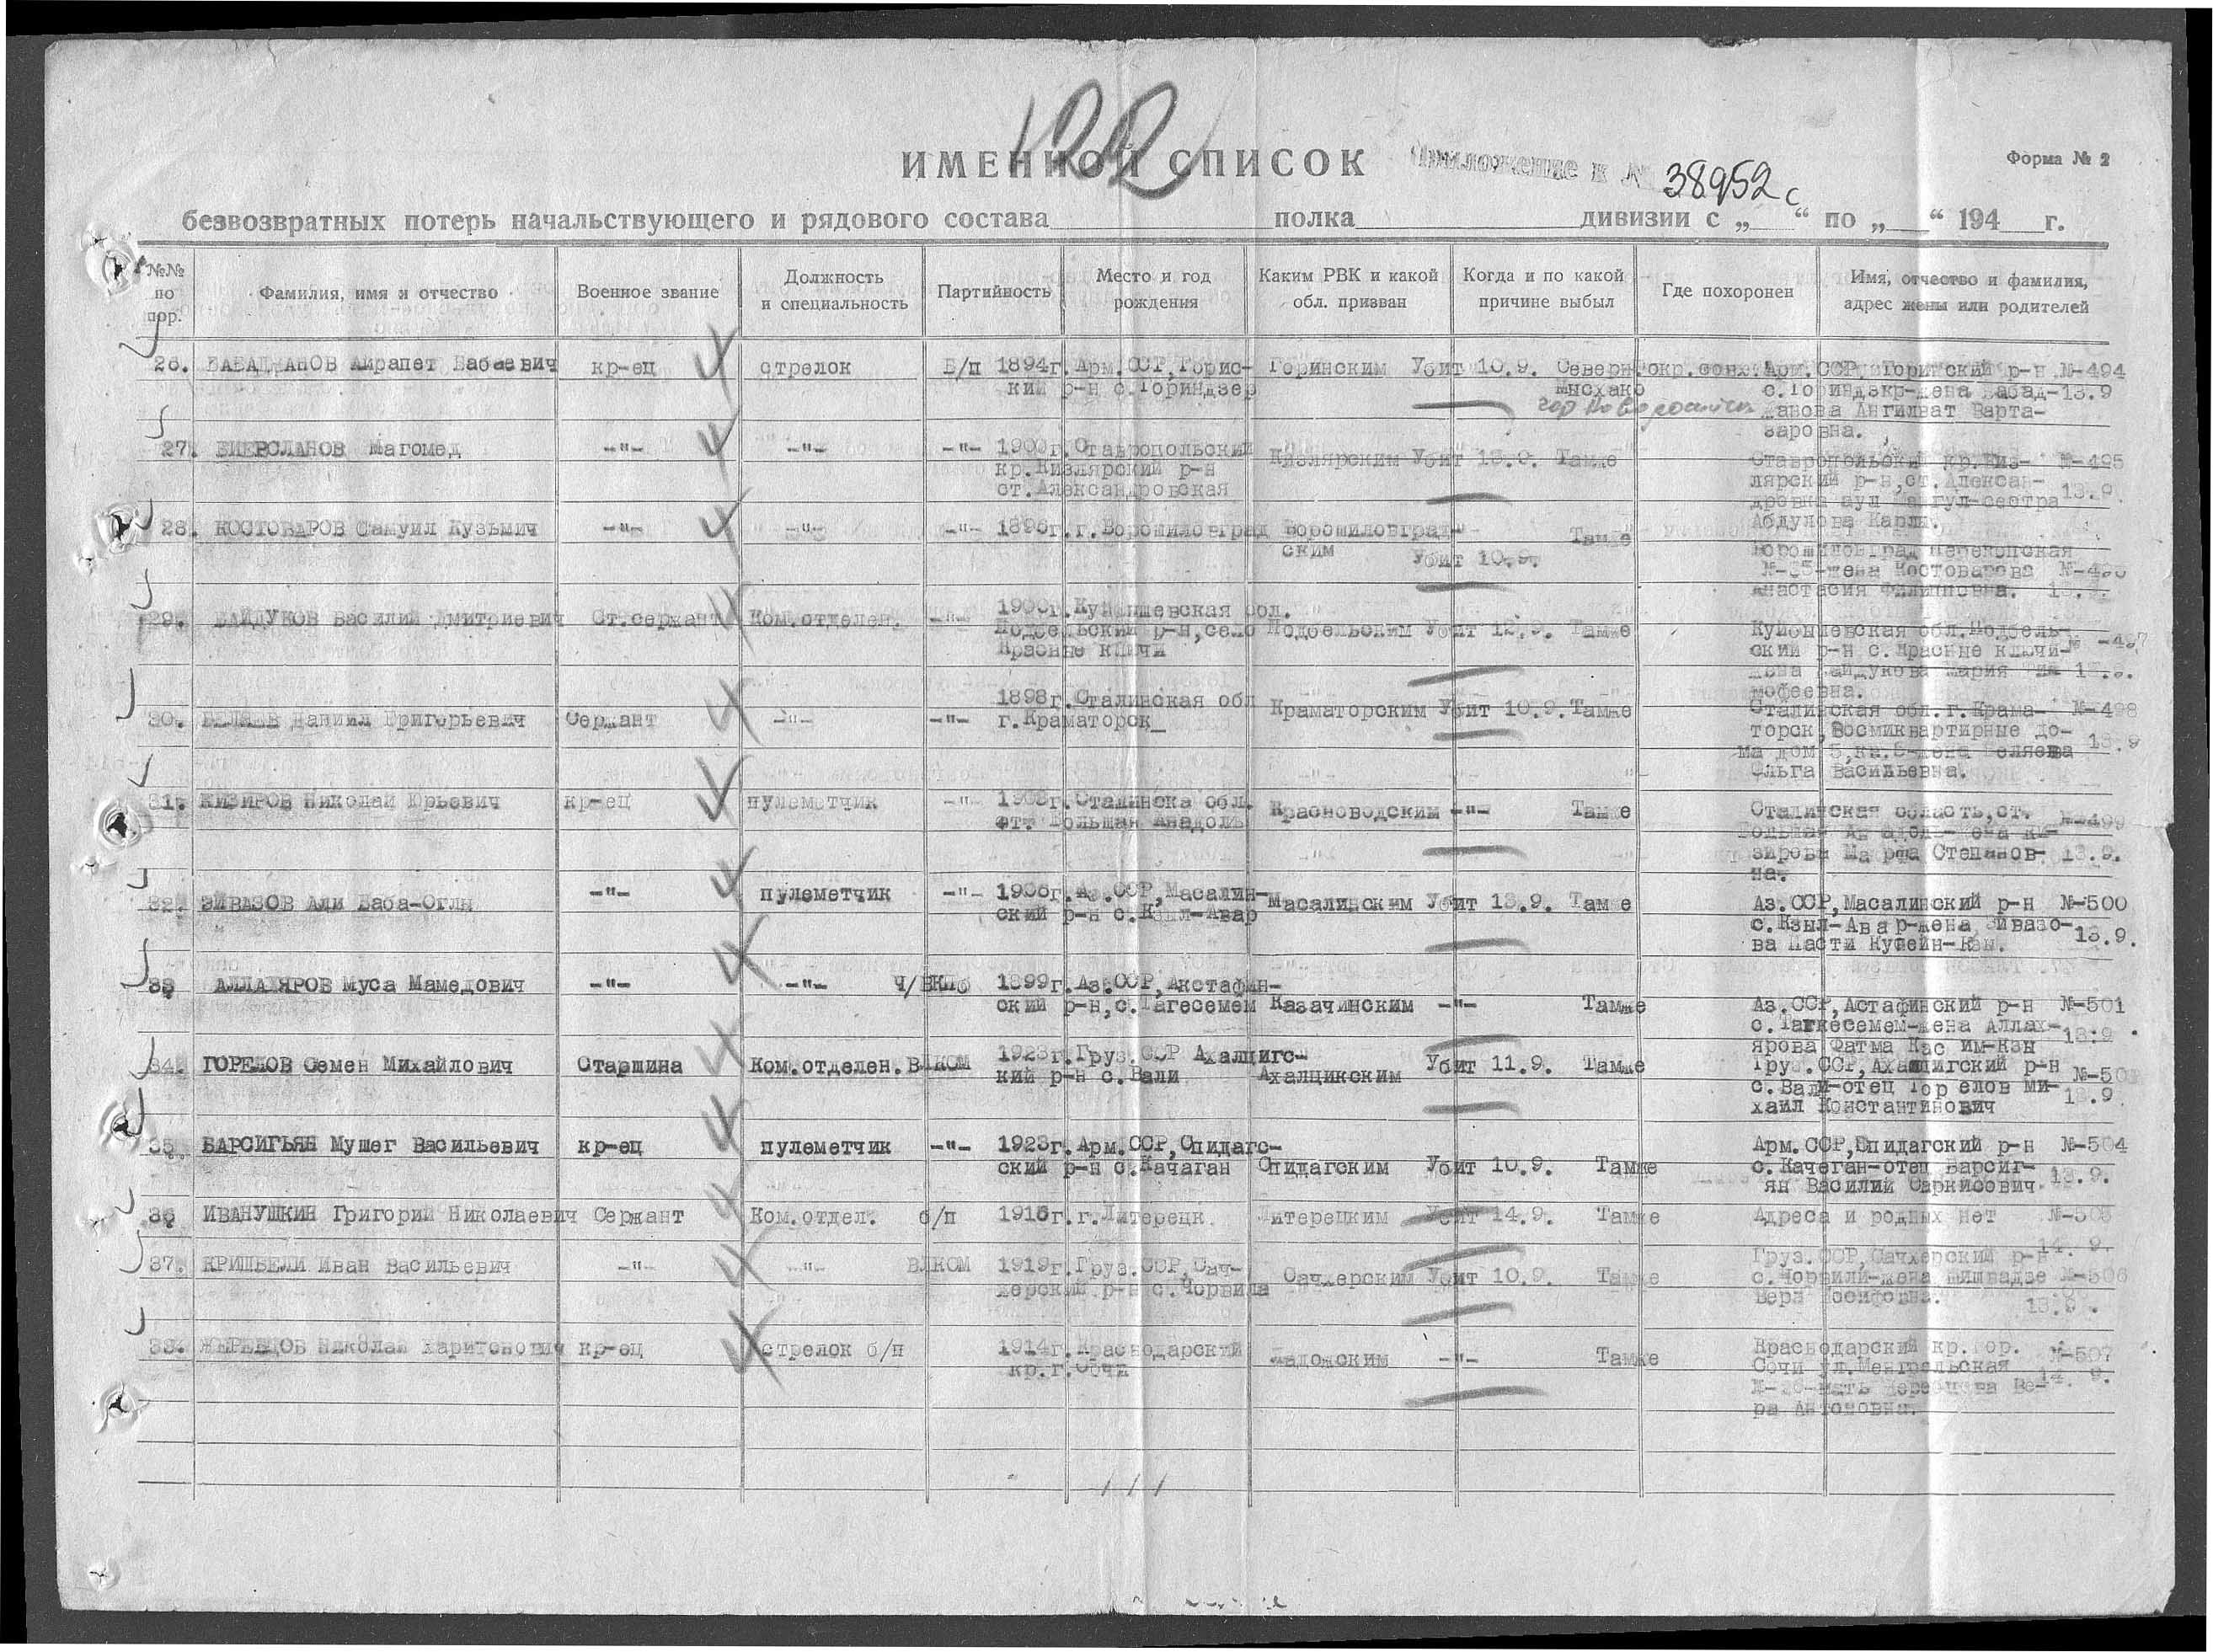 122
ИМЕННОЙ СПИСОК
Приложение к № 38952с
Форма № 2
безвозвратных потерь начальствующего и рядового состава полка дивизии с „ “ по „ “ 194 г.
№№ по пор.
Фамилия, имя и отчество
Военное звание
Должность и специальность
Партийность
Место и год рождения
Каким РВК и какой обл. призван
Когда и по какой причине выбыл
Где похоронен
Имя, отчество и фамилия, адрес жены или родителей
26. БАБАДЖАНОВ Айрапет Бабаевич кр-ец стрелок Б/п 1894г. Арм.ССР, Горис- Горинским Убит 10.9. Северн. окр. Арм.ССР, Горитский р-н №-494
кий р-н с.Гориндзер Мысхако с.Гориндзкр-жена Бабад- 13.9
гор Новороссийск жанова Ангилват Варта-
заровна.
27. Магомед -"- -"- -"- 1900г. Ставропольский Кизлярским Убит 13.9. Тамже Ставропольский кр. Киз- №-495
кр.Кизлярский р-н лярский р-н, ст. Алексан- 13.9.
ст.Александровская дровка аул сестра
Абдулова
28. КОСТОВАРОВ Самуил Кузьмич -"- -"- -"- 1896г. г.Ворошиловград Ворошиловград- Тамже
ским Убит 10.9. Ворошиловград Перекопская
жена Костоварова №-496
Анастасия Филипповна. 13.9.
29. БАЙДУКОВ Василий Дмитриевич Ст.сержант Ком.отделен. -"- 1900г. Куйбышевская обл.
Подбельский р-н, село Подбельским Убит 12.9. Тамже Куйбышевская обл. Подбель-
Красные ключи ский р-н с. Красные ключи- №-497
жена Байдукова Мария Ти- 13.9.
мофеевна.
30. БЕЛЯЕВ Даниил Григорьевич Сержант -"- -"- 1898г. Сталинская обл Краматорским Убит 10.9. Тамже Сталинская обл. г.Крама- №-498
г.Краматорск торск, Восмиквартирные до- 13.9
ма дом 5, кв. жена Беляева
Ольга Васильевна.
31. КИЗИРОВ Николай Юрьевич кр-ец пулеметчик -"- 1903г. Сталинска обл. Красноводским -"- Тамже Сталинская область, ст.
ст. Большая Анадоль Большая Анадоль-жена Ки- №-499
зирова Марфа Степанов- 13.9.
на.
32. ЭЙВАЗОВ Али Баба-Оглы -"- пулеметчик -"- 1906г. Аз.ССР, Масалин- Масалинским Убит 13.9. Тамже Аз.ССР, Масалинский р-н №-500
ский р-н с.Кзыл-Авар с.Кзыл-Авар-жена Эйвазо- 13.9.
ва Пасти Кусейн-Кзы.
33 АЛЛАХЯРОВ Муса Мамедович -"- -"- Ч/ВКПб 1899г. Аз.ССР, Акстафин-
ский р-н, с.Тагесемем Казачинским -"- Тамже Аз.ССР, Астафинский р-н №-501
с. Тагкесемем-жена Аллах- 13.9.
ярова Фатма Касим-кзы
34. ГОРЕЛОВ Семен Михайлович Старшина Ком.отделен. ВЛКОМ 1923г. Груз.ССР Ахалцигс- Убит 11.9. Тамже Груз.ССР, Ахалцигский р-н
кий р-н с.Вали Ахалцикским с.Вали-отец Горелов Ми- 13.9
хаил Константинович
35. БАРСИГЬЯН Мушег Васильевич кр-ец пулеметчик -"- 1923г. Арм.ССР, Спидагс- Арм.ССР, Спидагский р-н №-504
ский р-н с.Качаган Спидагским Убит 10.9. Тамже с.Качеган-отец Барсиг- 13.9.
ян Василий Саркисович.
36 ИВАНУШКИН Григорий Николаевич Сержант Ком.отдел. б/п 1916г. г.Литерецк Литерецким Убит 14.9. Тамже Адреса и родных нет №-505
14. 9.
37. КРИШВЕЛИ Иван Васильевич -"- -"- ВЛКОМ 1919г. Груз.ССР, Сач- Сачхерским Убит 10.9. Тамже Груз.ССР, Сачхерский р-н
херский р-н с.Чорвила с.Чорвили-жена №-506
Вера Иосифовна. 13.9.
38. ЖЕРЕБЦОВ Николай Харитонович кр-ец стрелок б/п 1914г. Краснодарский Ладожским -"- Тамже Краснодарский кр. гор. №-507
кр.г.Сочи Сочи ул. Менгрельская 14. 9.
мать Жеребцова Ве-
ра Антоновна.